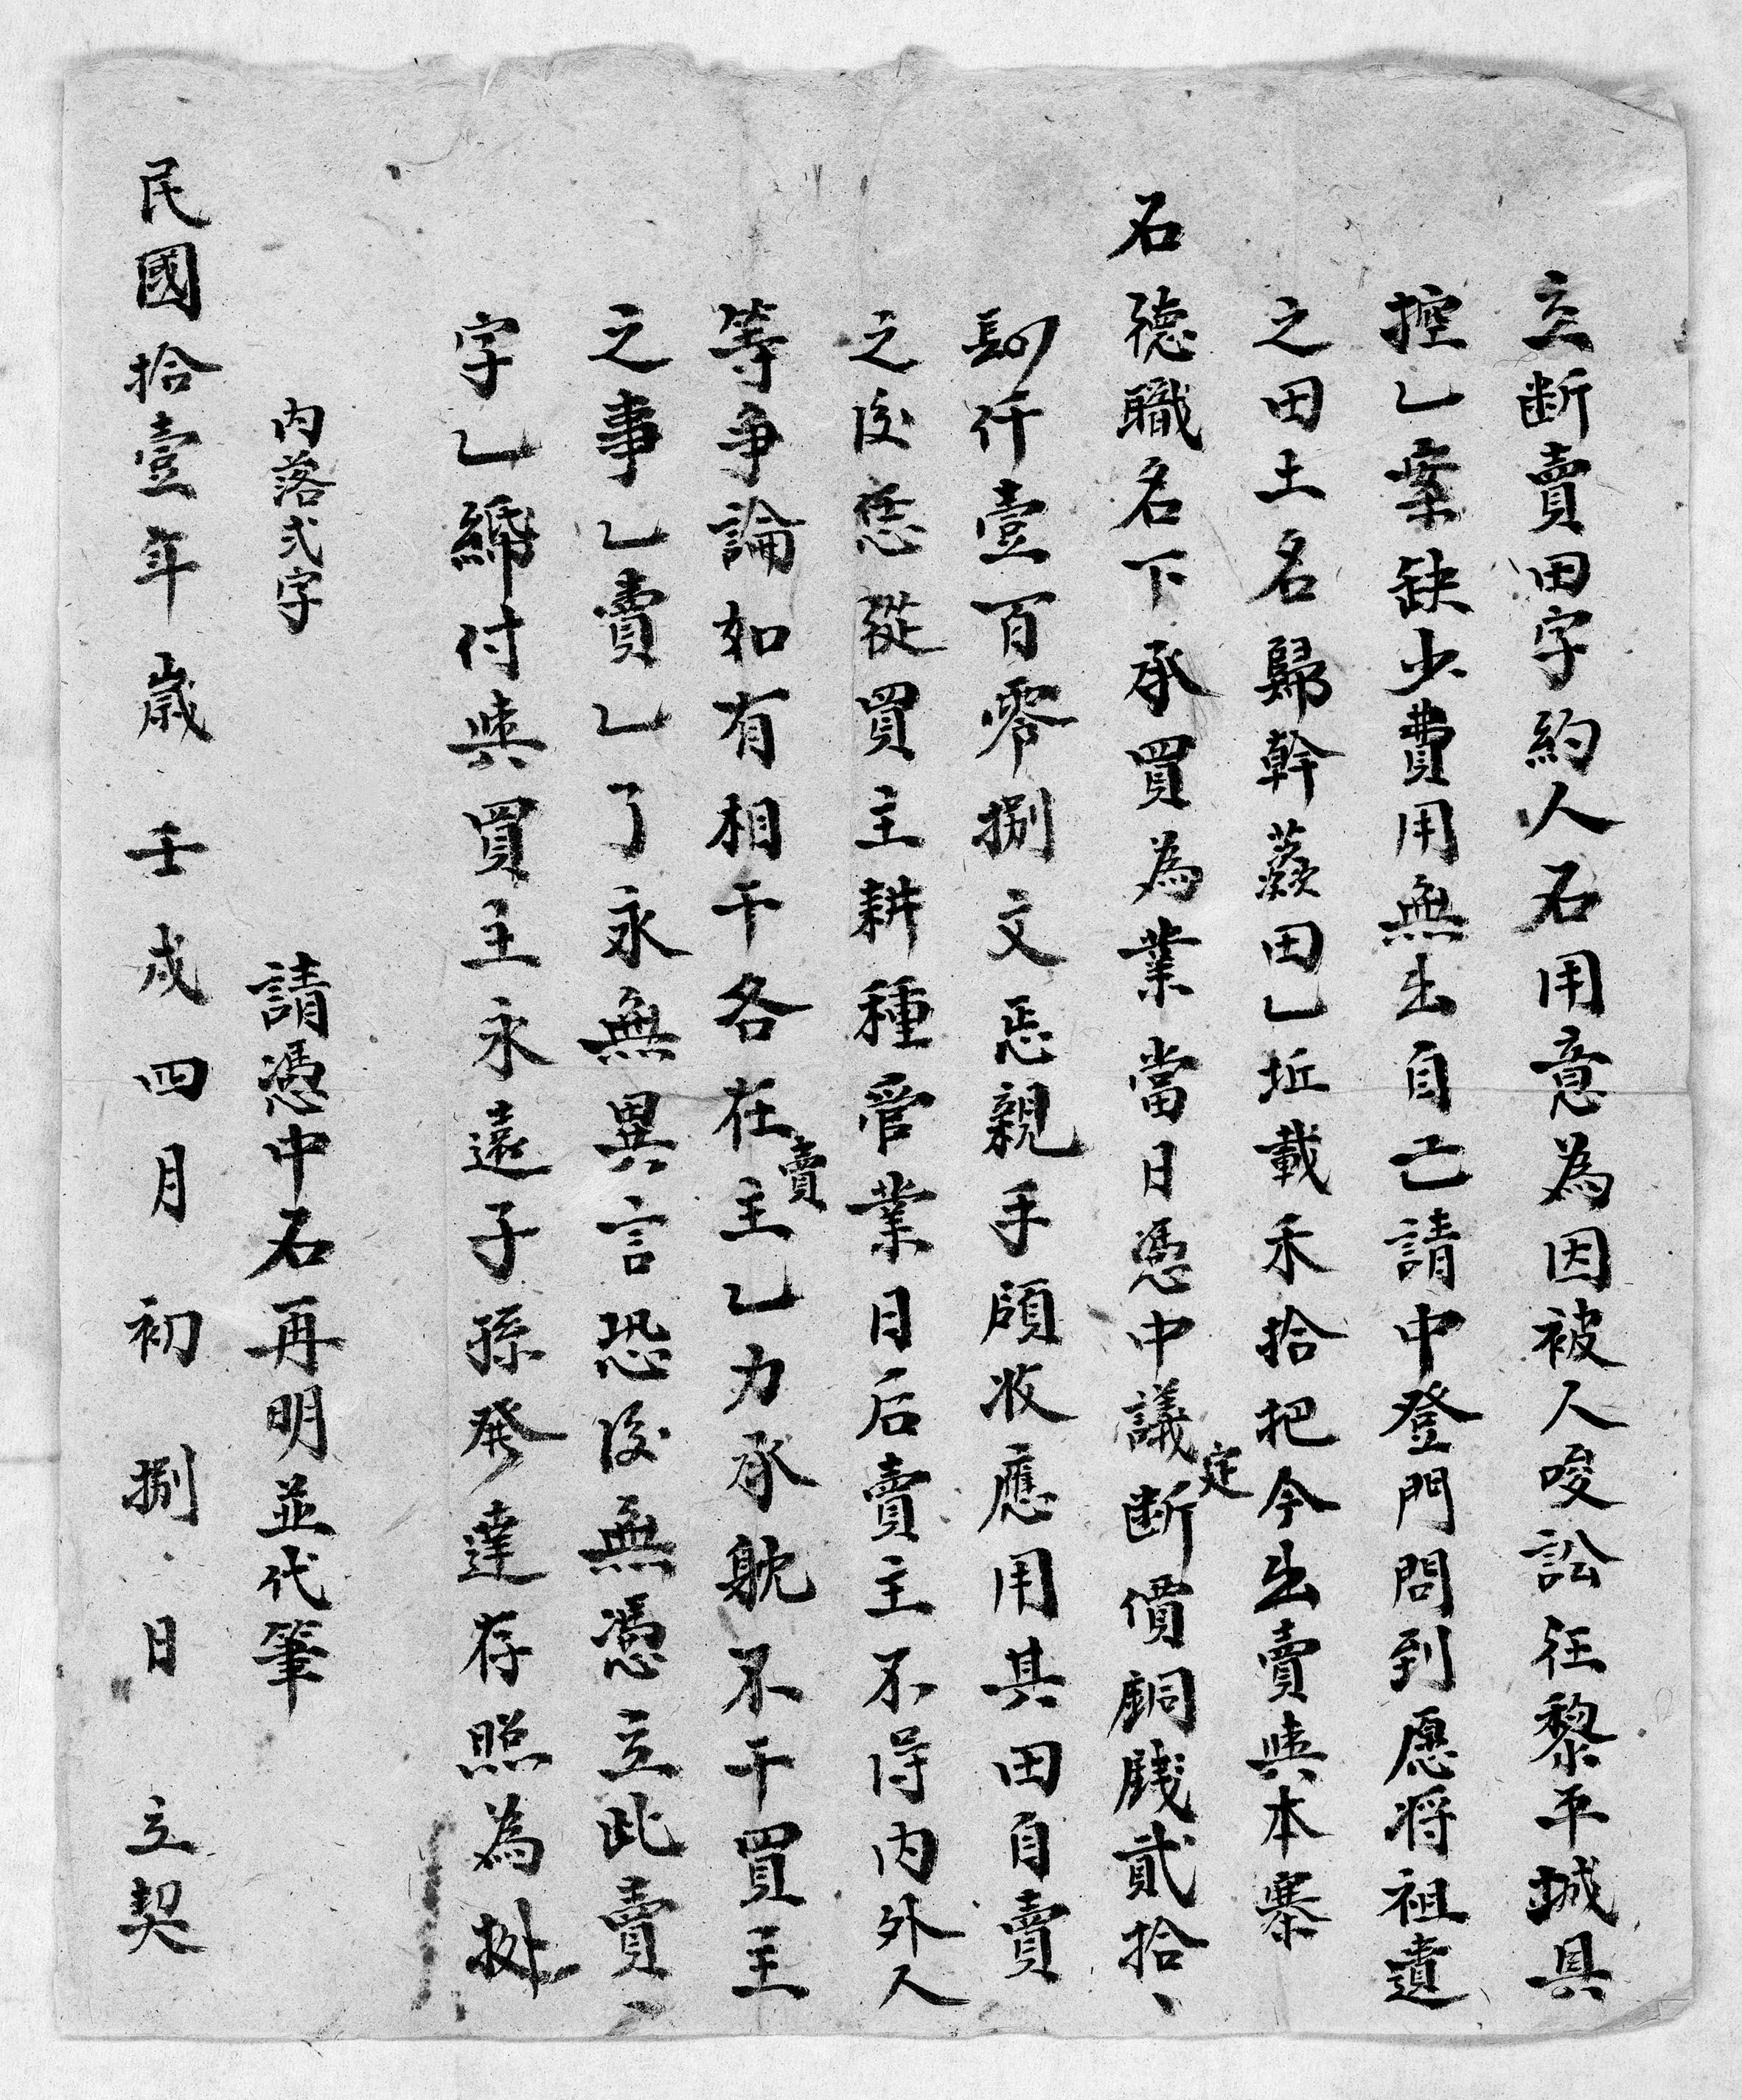 立断賣田字約人石用意為因被人唆訟往黎平城具
控乚案缺少費用無出自亡請中登門問到愿将祖遺
之田土名歸幹蕨田乚坵載禾拾把今出賣與本寨
石德職名下承買為業當日憑中議定断價銅錢貳拾
仟壹百零捌文恁親手領收應用其田自賣
之後恁從買主耕種管業日后賣主不得内外人
等争論如有相干各在賣主乚力承躭不干買主
之事乚賣乚了永無異言恐後無憑立此賣
字乚綿付與買主永遠子孫発達存照為㨿
内落弍字
請憑中石再明並代筆
民國拾壹年歲壬戌四月初捌日立契